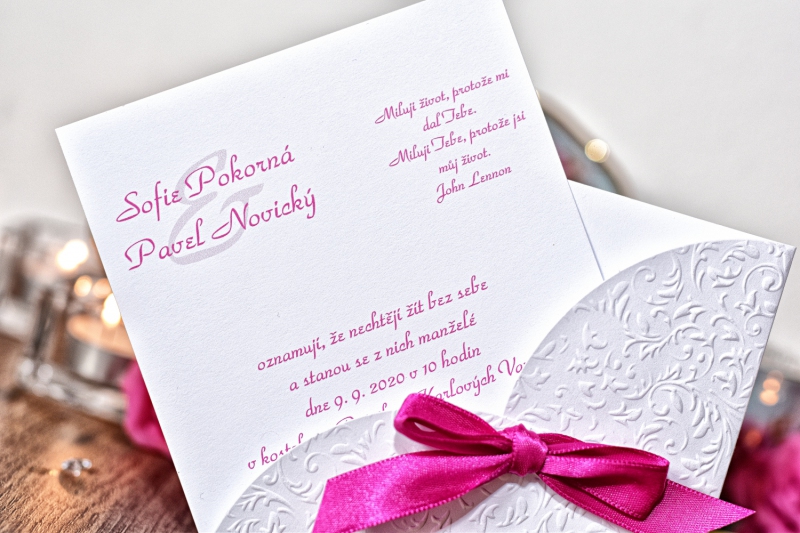 Miluji život, protože mi
dal Tebe.
Miluji Tebe, protože jsi
můj život.
John Lennon
Sofie Pokorná
&
Pavel Novický
oznamují, že nechtějí žít bez sebe
a stanou se z nich manželé
dne 9. 9. 2020 v 10 hodin
v Karlových